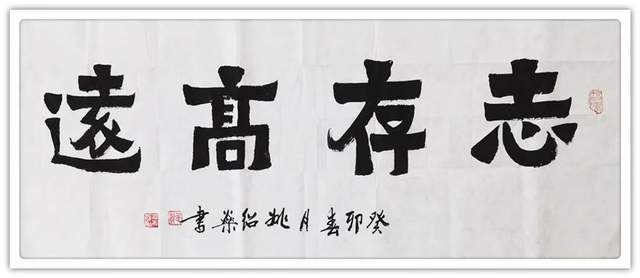 志存高遠
癸卯春月姚绍燊書